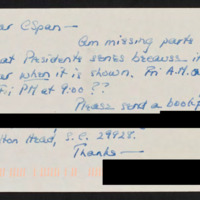 ar CSpan—
Am missing parts
at Presidents series because i
ar when it is shown. Fri A.M. a
Fri PM at 9:00 ??
Please send a book p
lton Head, S.C. 29928.
Thanks—